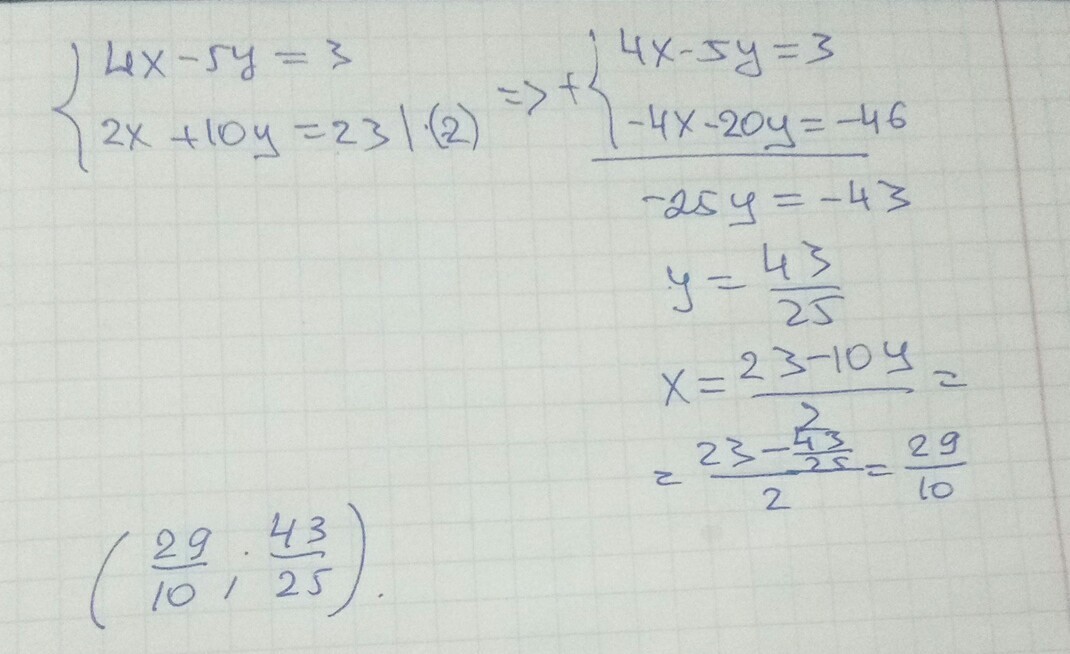 { 4x - 5y = 3
2x + 10y = 23 | ·(2)
=> + { 4x - 5y = 3
-4x - 20y = -46
-25y = -43
y = 43/25
x = (23 - 10y)/2 =
= (23 - 43/25)/2 = 29/10
(29/10 ; 43/25).